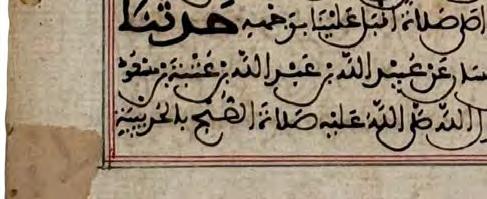 صلاته اقبل علينا بوجهه حدثنا
عن عبيد الله بن عبد الله بن عتبة بن مسعود
الله صلى الله عليه صلاة الصبح بالحديبية